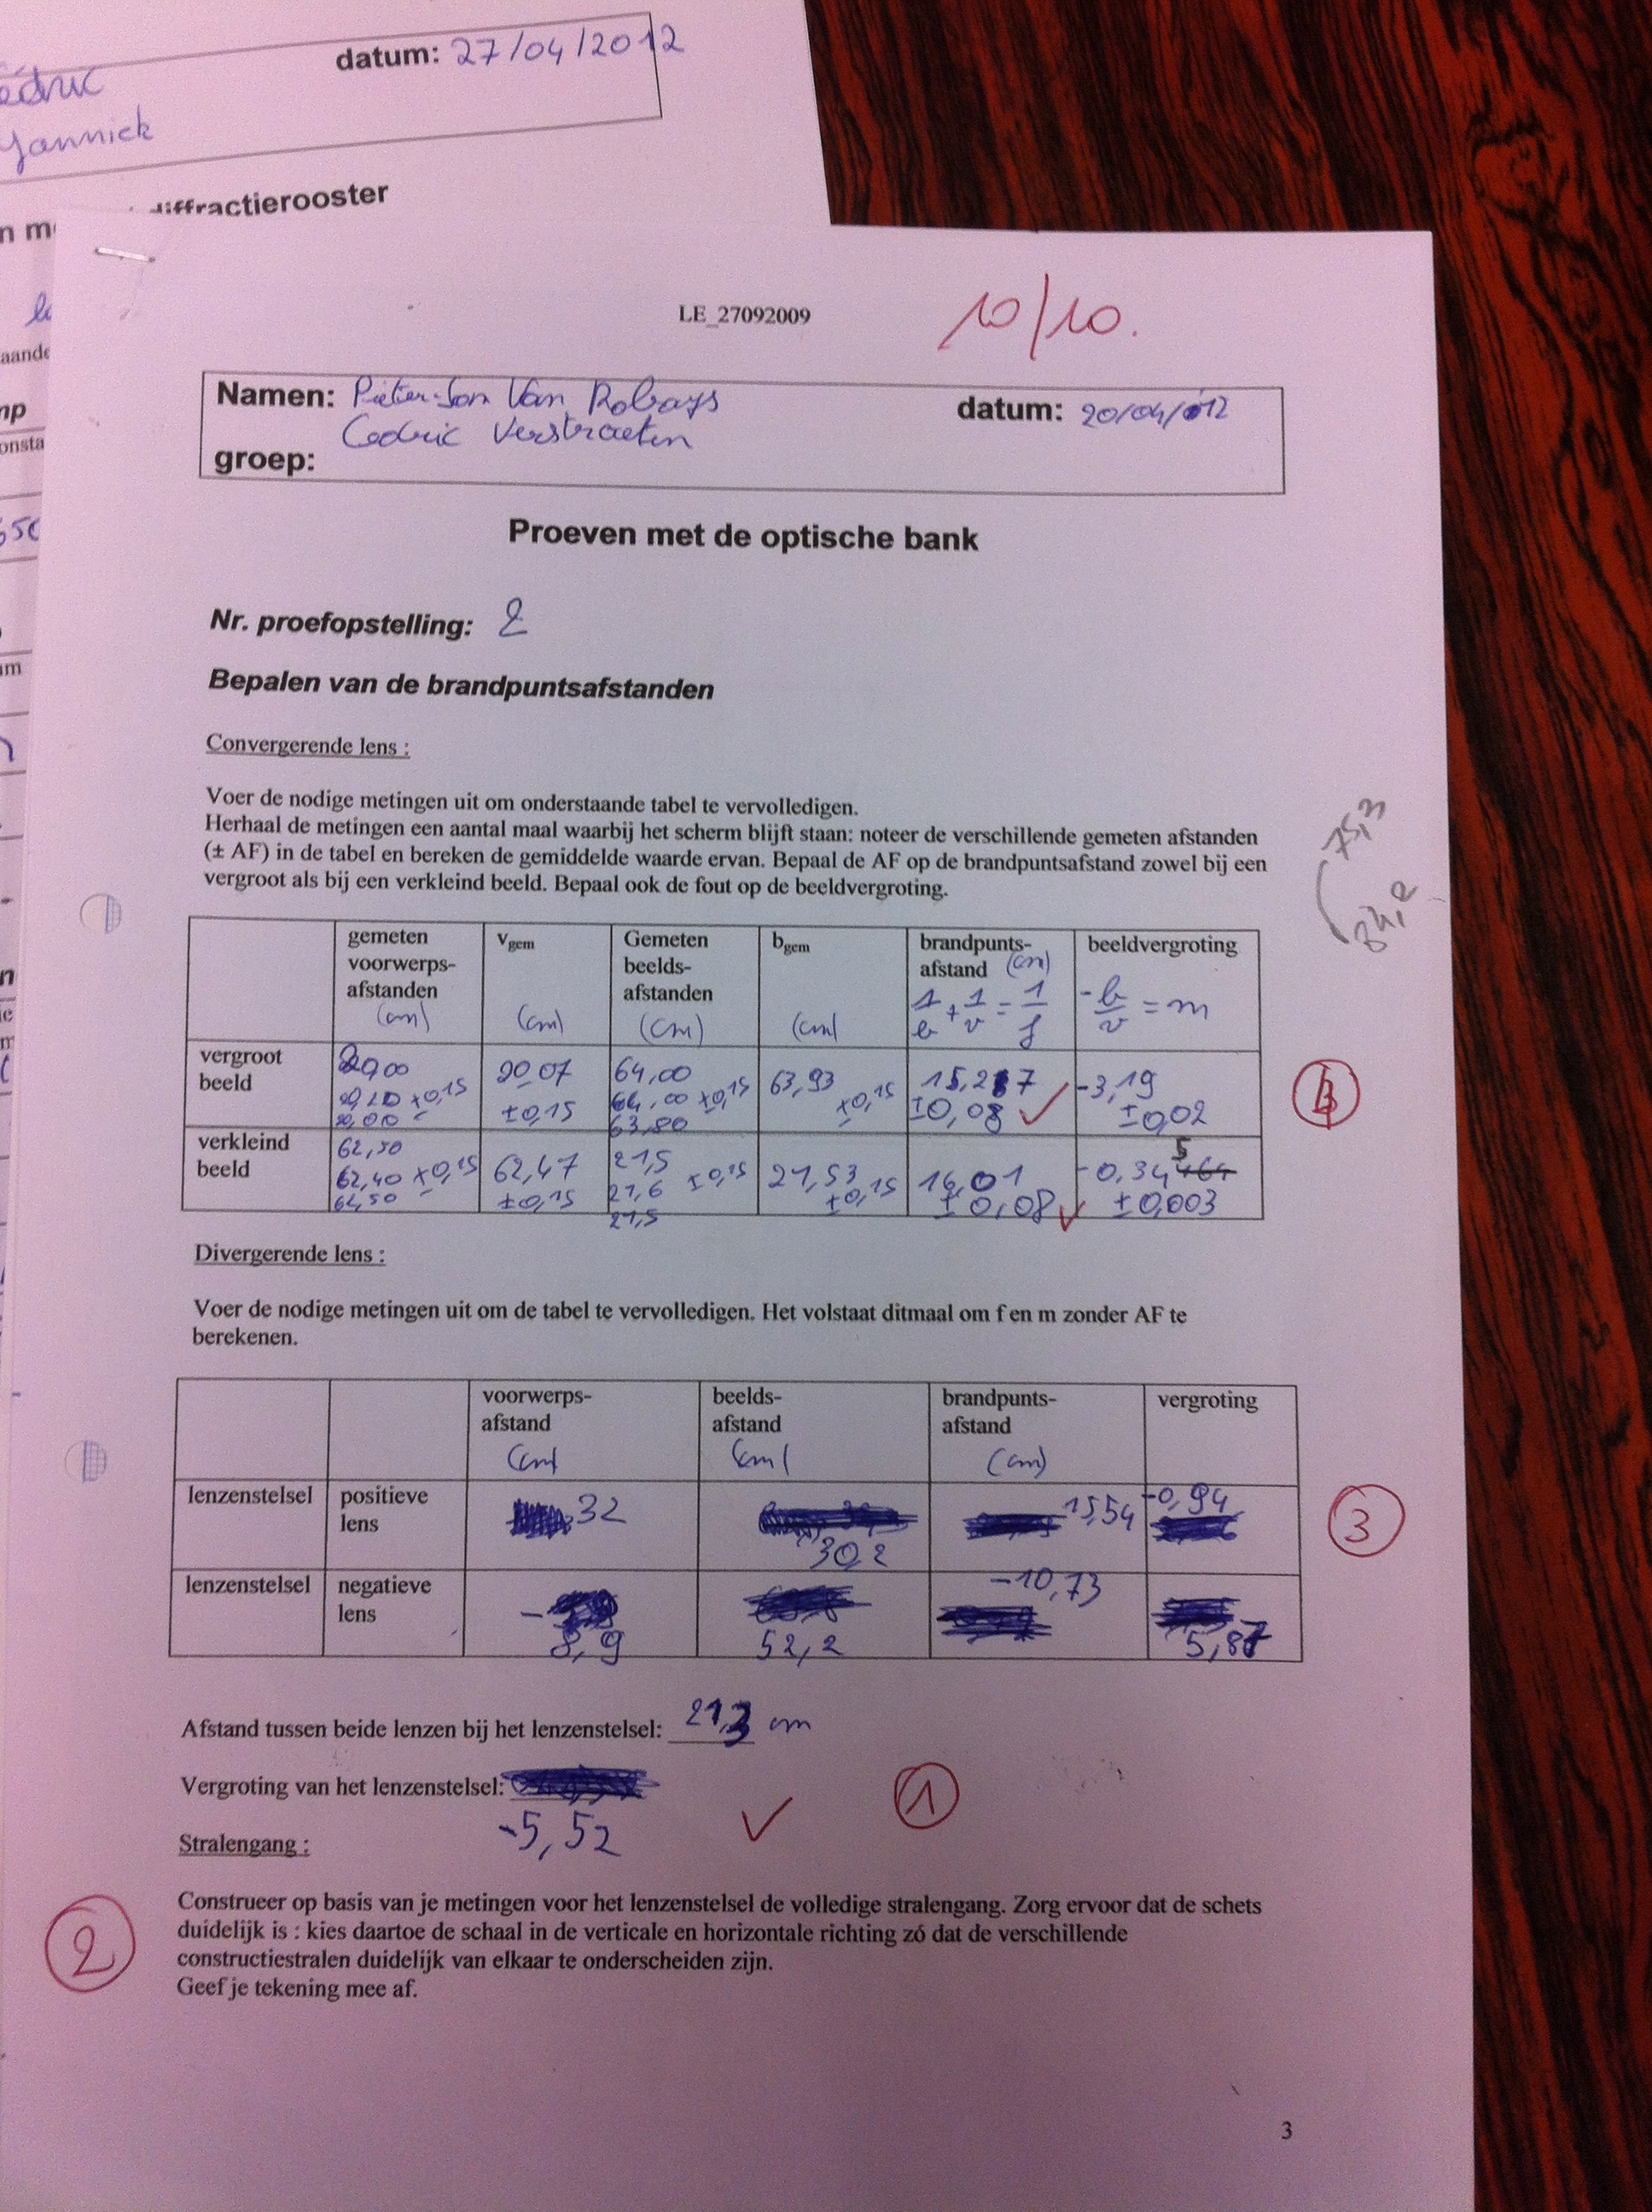 datum: 27/04/2012
Yannick
diffractierooster
LE_27092009
10/10.
Namen: Pieter-Jan Van Robays
Cedric Verstraeten
datum: 20/04/012
groep:
Proeven met de optische bank
Nr. proefopstelling: 2
Bepalen van de brandpuntsafstanden
Convergerende lens :
Voer de nodige metingen uit om onderstaande tabel te vervolledigen.
Herhaal de metingen een aantal maal waarbij het scherm blijft staan: noteer de verschillende gemeten afstanden
(± AF) in de tabel en bereken de gemiddelde waarde ervan. Bepaal de AF op de brandpuntsafstand zowel bij een
vergroot als bij een verkleind beeld. Bepaal ook de fout op de beeldvergroting.
75,3
84,2
gemeten voorwerps-afstanden (cm)
vgem (cm)
Gemeten beelds-afstanden (cm)
bgem (cm)
brandpunts-afstand (cm) 1/b + 1/v = 1/f
beeldvergroting -b/v = m
vergroot beeld
20,00
20,20 ±0,15
20,00
20,07
±0,15
64,00
64,00 ±0,15
63,80
63,93
±0,15
15,27
±0,08
-3,19
±0,02
verkleind beeld
62,50
62,40 ±0,15
62,50
62,47
±0,15
21,5
21,6 ±0,15
21,5
21,53
±0,15
16,01
±0,08
-0,345
±0,003
Divergerende lens :
Voer de nodige metingen uit om de tabel te vervolledigen. Het volstaat ditmaal om f en m zonder AF te
berekenen.
voorwerps-afstand (cm)
beelds-afstand (cm)
brandpunts-afstand (cm)
vergroting
lenzenstelsel
positieve lens
32
30,2
15,54
-0,94
3
lenzenstelsel
negatieve lens
-8,9
52,2
-10,73
5,87
Afstand tussen beide lenzen bij het lenzenstelsel: 21,3 cm
Vergroting van het lenzenstelsel:
-5,52
1
Stralengang :
2
Construeer op basis van je metingen voor het lenzenstelsel de volledige stralengang. Zorg ervoor dat de schets
duidelijk is : kies daartoe de schaal in de verticale en horizontale richting zó dat de verschillende
constructiestralen duidelijk van elkaar te onderscheiden zijn.
Geef je tekening mee af.
3